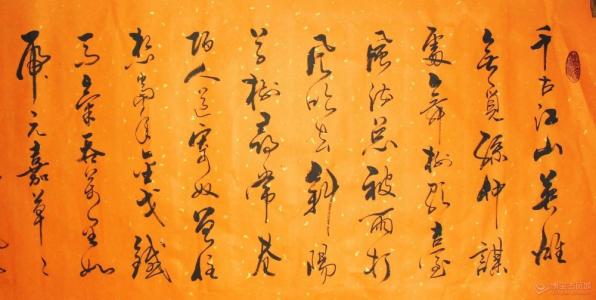 千古江山英雄
無覓孫仲謀
處舞榭歌臺
風流總被雨打
風吹去斜陽
草樹尋常巷
陌人道寄奴曾住
想當年金戈鐵
馬氣吞萬里如
虎元嘉草々